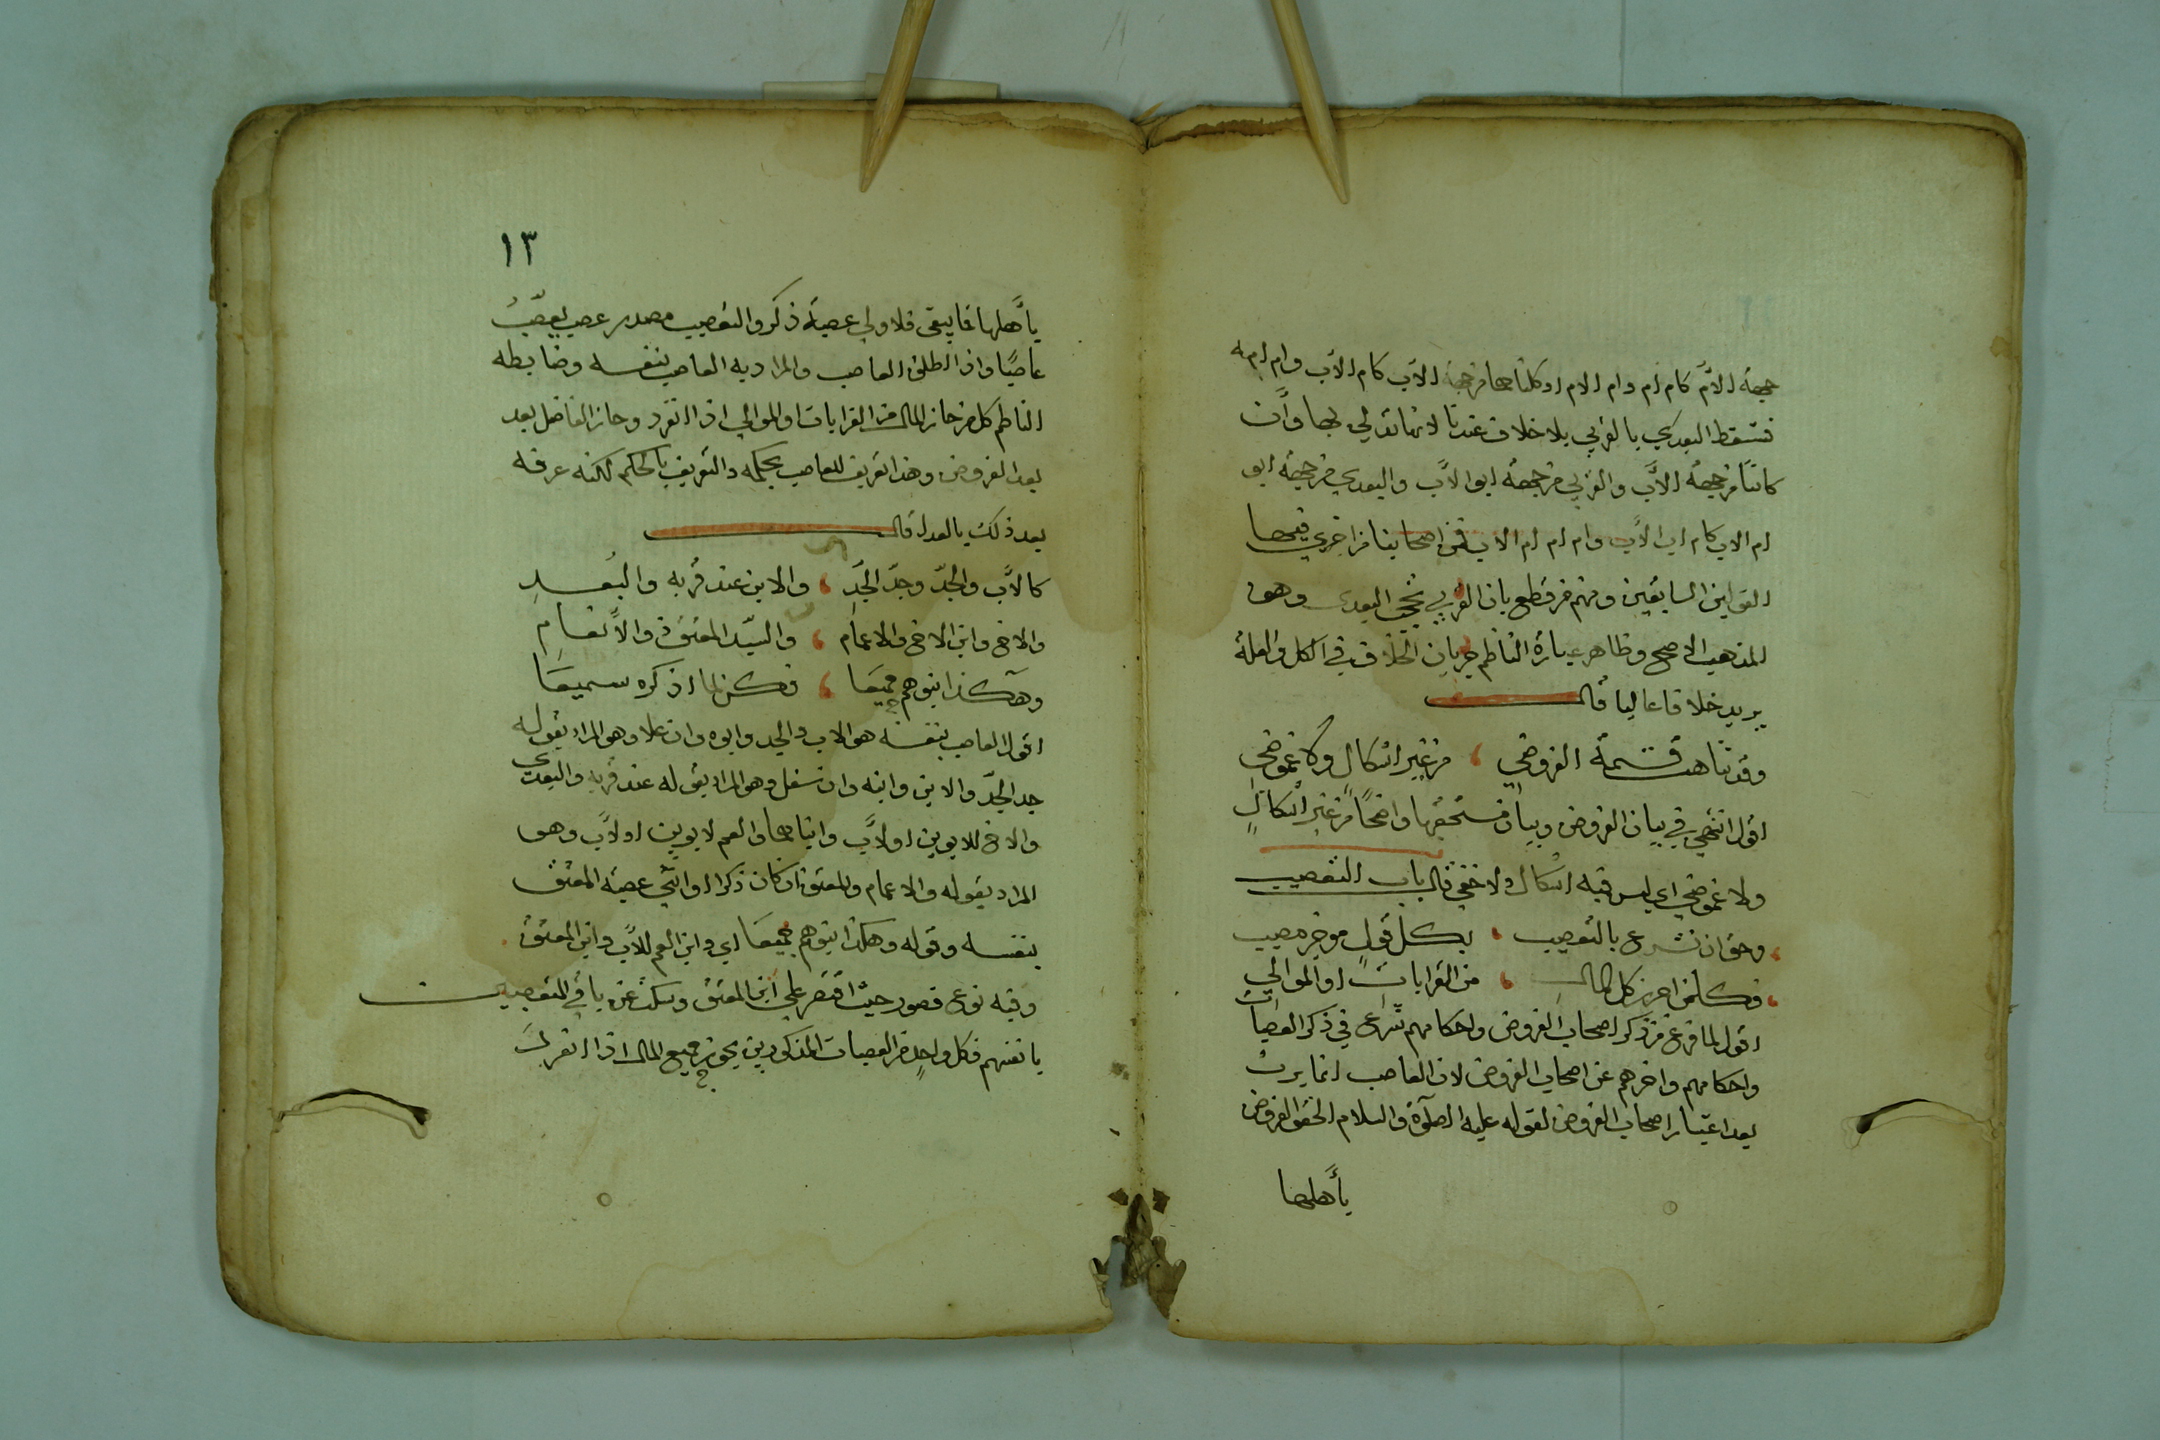 جهة الأم كام ام وام الام او كلتاهما من جهة الاب كام الاب وام امه
فتسقط البعدي بالقربي بلا خلاف عندنا لانها تدلي بها وان
كانتا من جهة الأب والقربي من جهة ابو الأب والبعدي من جهة ابو
ام الاب كام اب الأب وام ام ام الاب فمن اصحابنا من اجري فيها
القولين السابقين ومنهم من قطع بان القربي تحجب البعدي وهو
المذهب الاصح وظاهر عبارة الناظم جريان الخلاف في الكل ولعله
يريد خلافا عاليا قال
وقد تناهت قسمة الفروض ، من غير اشكال ولا غموض
اقول انتهي في بيان الفروض وبيان مستحقيها واضحًا من غير اشكالٍ
ولا غموض اي ليس فيه اشكال ولا خفي قال باب التعصيب
وحق ان نشرع بالتعصيب ، بكل قولٍ موجز مصيب
فكل من احرز كل المال ، من القرابات او الموالي
اقول لما فرغ من ذكر اصحاب الفروض واحكامهم شرع في ذكر العصبات
واحكامهم واخرهم عن اصحاب الفروض لان العاصب انما يرث
بعد اعتبار اصحاب الفروض لقوله عليه الصلوة والسلام الحقوا الفروض
بأهلها
١٣
بأهلها فما بقي فلاولي عصبة ذكر والتعصيب مصدر عصب يعصّبُ
عاصبًا واذا اطلق العاصب والمراد به العاصب بنفسه وضابطه
الناظم كل من حاز المال من القرابات او الموالي اذا انفرد وحاز الفاضل بعد
بعد الفروض وهذا تعريف للعاصب بحكمه والتعريف بالحكم لكنه عرفه
بعد ذلك بالعد قال
كالأب والجدّ وجدّ الجدِّ ، والابن عند قربه والبُعدِ
والاخ وابن الاخ والاعمام ، والسيّد المعتق ذو الأنعامِ
وهكذا بنوهم جميعَا ، فكن لما اذكره سميعَا
اقول العاصب بنفسه هو الاب والجد وابوه وان علا وهو المراد بقوله
جد الجدّ والابن وابنه وان سفل وهو المراد بقوله عند قربه والبعد
والاخ للابوين او لأب وابناهما والعم لابوين او لأب وهو
المراد بقوله والاعمام والمعتق ان كان ذكرا او انثي عصبة المعتق
بنفسه وقوله وهكذا بنوهم جميعَا اي وابن العم للأب وابن المعتق
وفيه نوع قصور حيث اقتصر علي ابن المعتق وسكت عن باقي المتعصبين
بانفسهم فكل واحدٍ من العصبات المذكورين يحوز جميع المال اذا انفرد